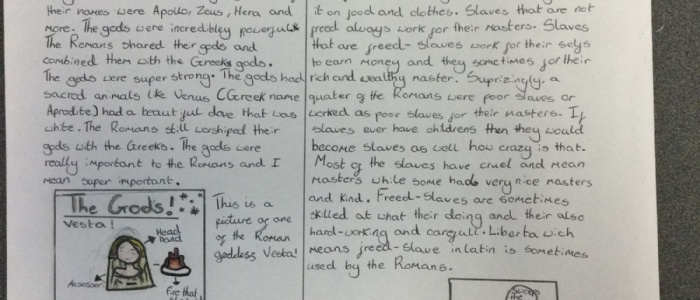 their names were Apollo, Zeus, Hera and
more. The gods were incredibley powerful
The Romans shared their gods and
combined them with the Greeks gods.
The gods were super strong. The gods had
sacred animals like Venus (Greek name
Aprodite) had a beautiful dove that was
white. The Romans still worshiped their
gods with the Greeks. The gods were
really important to the Romans and I
mean super important.
The Gods!
Vesta!
Head
band
Fire that
This is a
picture of one
of the Roman
goddess Vesta!
it on food and clothes. Slaves that are not
freed always work for their masters. Slaves
that are freed-slaves work for their selfs
to earn money and they sometimes for their
rich and wealthy master. Suprizingly, a
quater of the Romans were poor slaves or
worked as poor slaves for their masters. If
slaves ever have childrens then they would
become slaves as well how crazy is that.
Most of the slaves have cruel and mean
masters while some had very nice masters
and kind. Freed-slaves are sometimes
skilled at what their doing and their also
hard-working and carefull. Liberta wich
means freed-slave in latin is sometimes
used by the Romans.